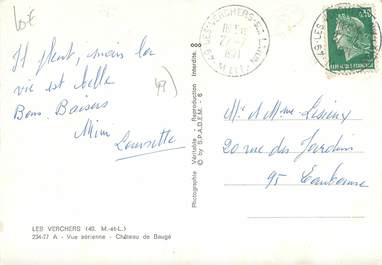 10€
Il pleut, mais la
vie est belle
Bons Baisers
Mimi
Louisette
49)
LES VERCHERS (49. M.-et-L.)
234-77 A - Vue aérienne - Château de Baugé
Photographie Véritable - Reproduction Interdite
© by S.P.A.D.E.M. - 6
49 LES VERCHERS-S-
1971
0,30
49 LES
Mr et Mme Lisieux
20 rue des Jardins
95 Eaubonne